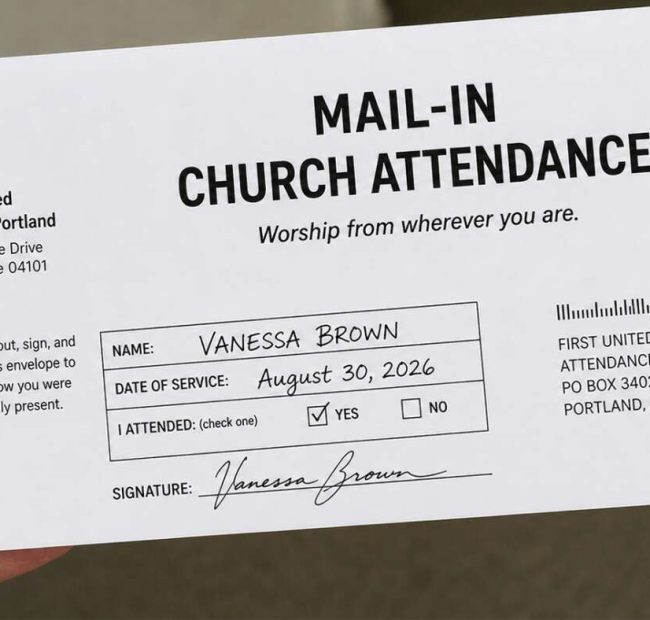 MAIL-IN
CHURCH ATTENDANCE
Worship from wherever you are.
Portland
Drive
04101
out, sign, and
envelope to
you were
present.
NAME: VANESSA BROWN
DATE OF SERVICE: August 30, 2026
I ATTENDED: (check one) YES NO
SIGNATURE: Vanessa Brown
FIRST UNITED
ATTENDANCE
PO BOX
PORTLAND,